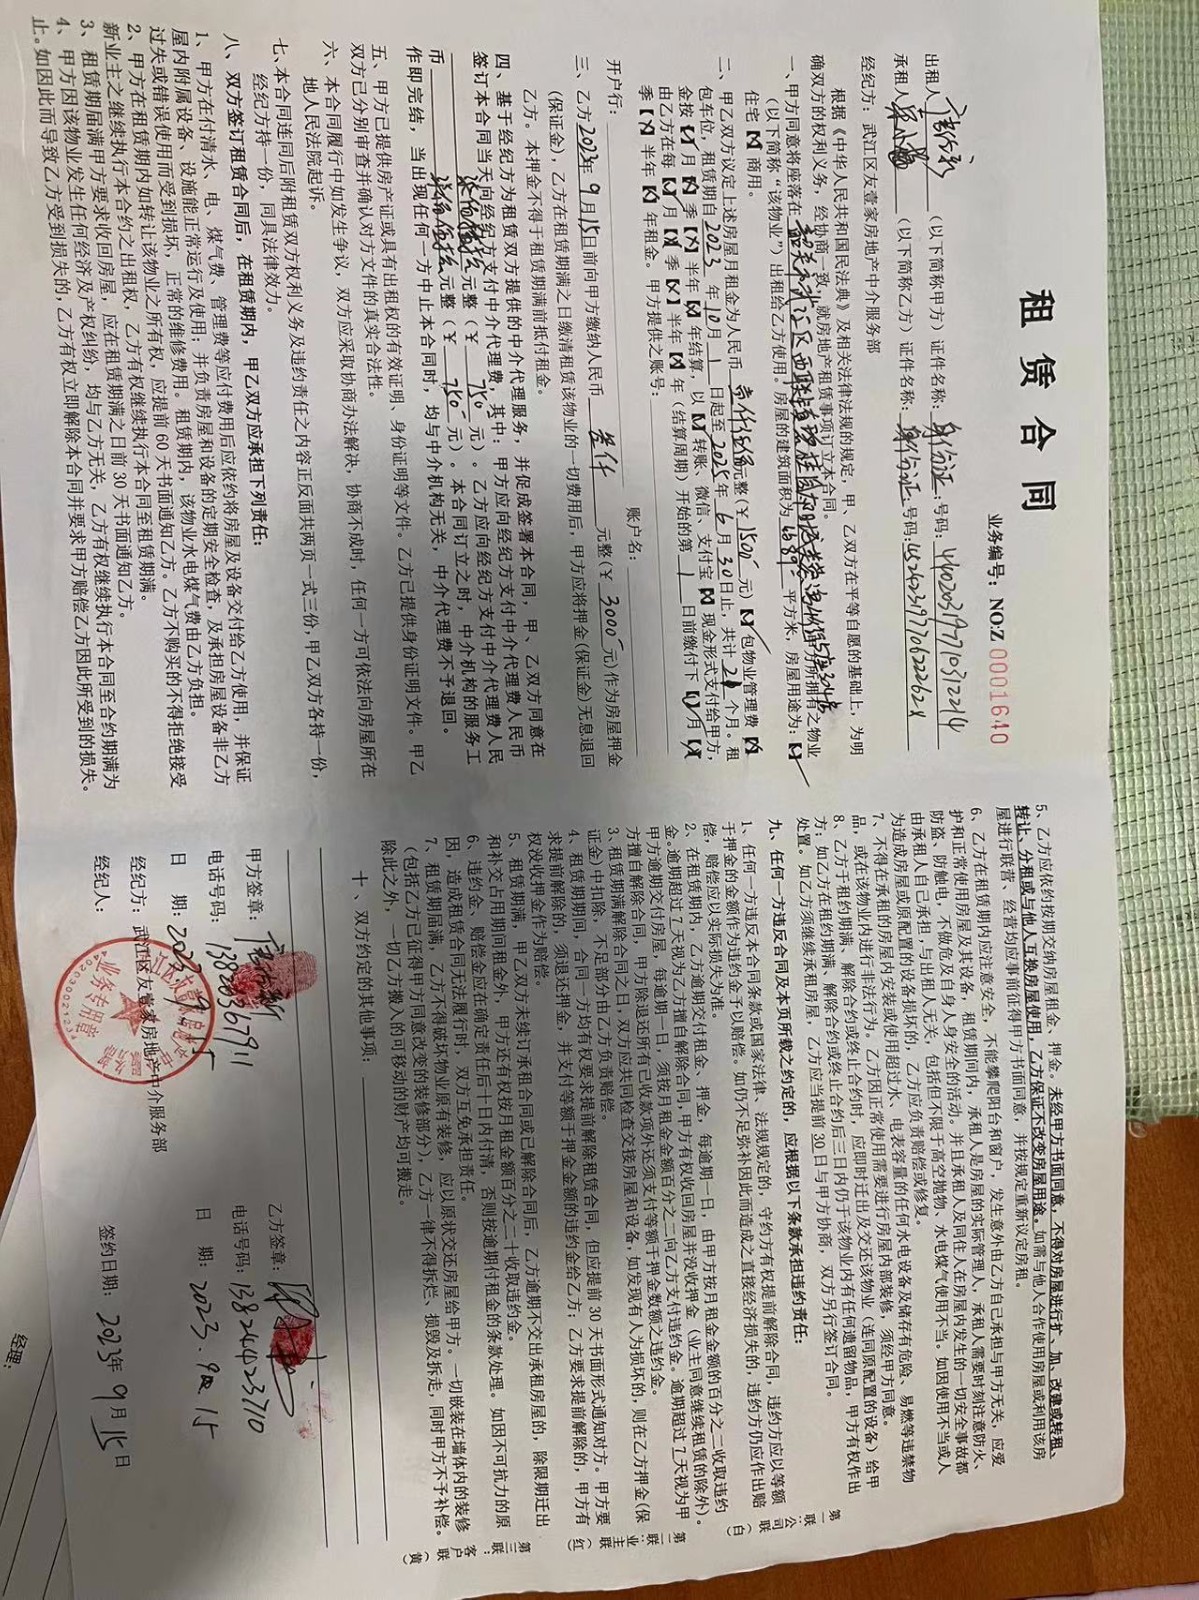 租 赁 合 同
业务编号：NO:Z 00001640
出租人 （以下简称甲方）证件名称：身份证：号码：440203197703122214
承租人 （以下简称乙方）证件名称：身份证号码：
经纪方：武江区友壹家房地产中介服务部
根据《中华人民共和国民法典》及相关法律法规的规定，甲、乙双方在平等自愿的基础上，为明
确双方的权利义务，经协商一致，就房地产租赁事项订立本合同。
一、甲方同意将座落在 韶关市武江区西联镇 房所拥有之物业
（以下简称“该物业”）出租给乙方使用。房屋的建筑面积为 平方米，房屋用途为：【✓】
住宅【✗】商用。
二、甲乙双方议定上述房屋月租金为人民币 壹仟伍佰元整（￥1500 元）【✓】包物业管理费【✗】
包车位，租赁期自2023 年10月 1 日起至2025年 6 月30日止，共计21个月。租
金按【✓】月【✗】季【✗】半年【✗】年结算，以【✓】转账、微信、支付宝【✗】现金形式支付给甲方，
由乙方在每【✓】月【✗】季【✗】半年【✗】年（结算周期）开始的第 1 日前缴付下【✓】月【✗】
季【✗】半年【✗】年租金。甲方提供之账号：
开户行： 账户名：
三、乙方2023年 9 月15日前向甲方缴纳人民币 叁仟 元整（￥ 3000 元）作为房屋押金
（保证金），乙方在租赁期满之日缴清租赁该物业的一切费用后，甲方应将押金（保证金）无息退回
乙方。本押金不得于租赁期满前抵付租金。
四、基于经纪方为租赁双方提供的中介代理服务，并促成签署本合同，甲、乙双方同意在
签订本合同当天向经纪方支付中介代理费，其中：甲方应向经纪方支付中介代理费人民币
柒佰伍拾元整（￥ 750 元）。乙方应向经纪方支付中介代理费人民
币 柒佰伍拾元整（￥ 750 元）。本合同订立之时，中介机构的服务工
作即完结，当出现任何一方中止本合同时，均与中介机构无关，中介代理费不予退回。
五、甲方已提供房产证或具有出租权的有效证明、身份证明等文件。乙方已提供身份证明文件。甲乙
双方已分别审查并确认对方文件的真实合法性。
六、本合同履行中如发生争议，双方应采取协商办法解决，协商不成时，任何一方可依法向房屋所在
地人民法院起诉。
七、本合同连同后附租赁双方权利义务及违约责任之内容正反面共两页一式三份，甲乙双方各持一份，
经纪方持一份，同具法律效力。
八、双方签订租赁合同后，在租赁期内，甲乙双方应承担下列责任：
1、甲方在付清水、电、煤气费、管理费等应付费用后应依约将房屋及设备交付给乙方使用，并保证
屋内附属设备、设施能正常运行及使用；并负责房屋和设备的定期安全检查，及承担房屋设备非乙方
过失或错误使用而受到损坏，正常的维修费用。租赁期内，该物业水电煤气费由乙方负担。
2、甲方在租赁期内如转让该物业之所有权，应提前 60 天书面通知乙方。乙方不购买的不得拒绝接受
新业主之继续执行本合约之出租权，乙方有权继续执行本合同至租赁期满。
3、租赁期届满甲方要求收回房屋，应在租赁期满之日前 30 天书面通知乙方。
4、甲方因该物业发生任何经济及产权纠纷，均与乙方无关，乙方有权继续执行本合同至合约期满为
止。如因此而导致乙方受到损失的，乙方有权立即解除本合同并要求甲方赔偿乙方因此所受到的损失。
5、乙方应依约按期交纳房屋租金、押金。未经甲方书面同意，不得对房屋进行扩、加、改建或转租、
转让、分租或与他人互换房屋使用，乙方保证不改变房屋用途。如需与他人合作使用房屋或利用该房
屋进行联营、经营均应事前征得甲方书面同意，并按规定重新议定房租。
6、乙方在租赁期内应注意安全，不能攀爬阳台和窗户，发生意外由乙方自己承担与甲方无关，应爱
护和正常使用房屋及其设备，租赁期间内，承租人是房屋的实际管理人，承租人需要时刻注意防火、
防盗、防触电，不做危及自身人身安全的活动。并且承租人及同住人在房屋内发生的一切安全事故都
由承租人自己承担，与出租人无关，包括但不限于高空抛物，水电煤气使用不当。如因使用不当或人
为造成房屋或原配置的设备损坏的，乙方应负责赔偿或修复。
7、不得在承租的房屋内安装或使用超过水、电表容量的任何水电设备及储存有危险、易燃等违禁物
品，或在该物业内进行非法行为。乙方因正常使用需要进行房屋内部装修，须经甲方同意。
8、乙方于租约期满、解除合约或终止合约时，应即时迁出及交还该物业（连同原配置的设备）给甲
方；如乙方在租约期满、解除合约或终止合约后三日内仍于该物业内有任何遗留物品，甲方有权作出
处置。如乙方须继续承租房屋，乙方应当提前 30 日与甲方协商，双方另行签订合同。
九、任何一方违反合同及本页所载之约定的，应根据以下条款承担违约责任：
1、任何一方违反本合同条款或国家法律、法规规定的，守约方有权提前解除合同，违约方应以等额
于押金的金额作为违约金予以赔偿。如仍不足弥补因此而造成之直接经济损失的，违约方仍应作出赔
偿，赔偿应以实际损失为准。
2、在租赁期内，乙方逾期交付租金、押金，每逾期一日，由甲方按月租金金额的百分之二收取违约
金。逾期超过 7 天视为乙方擅自解除合同，甲方有权收回房屋并没收押金（业主同意继续租赁的除外）。
甲方逾期交付房屋，每逾期一日，须按月租金金额百分之二向乙方支付违约金。逾期超过 7 天视为甲
方擅自解除合同，甲方除退还所有已收款项外还须支付等额于押金数额之违约金。
3、租赁期满解除合同之日，双方应共同检查交接房屋和设备，如发现有人为损坏的，则在乙方押金（保
证金）中扣除，不足部分由乙方负责赔偿。
4、租赁期期间，合同一方均有权要求提前解除租赁合同，但应提前 30 天书面形式通知对方。甲方要
求提前解除的，须退还押金，并支付等额于押金金额的违约金给乙方；乙方要求提前解除的，甲方有
权没收押金作为赔偿。
5、租赁期满，甲乙双方未续订承租合同或已解除合同后，乙方逾期不交出承租房屋的，除限期迁出
和补交占用期间租金外，甲方还有权按月租金额百分之二十收取违约金。
6、违约金、赔偿金应在确定责任后十日内付清，否则按逾期付租金的条款处理。如因不可抗力的原
因，造成租赁合同无法履行时，双方互免承担责任。
7、租赁期届满，乙方不得破坏物业原有装修，应以原状交还房屋给甲方。一切嵌装在墙体内的装修
（包括乙方已征得甲方同意改变的装修部分），乙方一律不得拆烂、损毁及拆走，同时甲方不予补偿。
除此之外，一切乙方搬入的可移动的财产均可搬走。
十、双方约定的其他事项：
甲方签章： 乙方签章：
电话号码：13883667911 电话号码：13824423710
日 期：2023.9.15 日 期：2023.9月15
经纪方：武江区友壹家房地产中介服务部
经纪人： 签约日期：2023年 9月15日
业务专用章
第一联：公司联（白）
第二联：业主联（红）
第三联：客户联（黄）
经理：